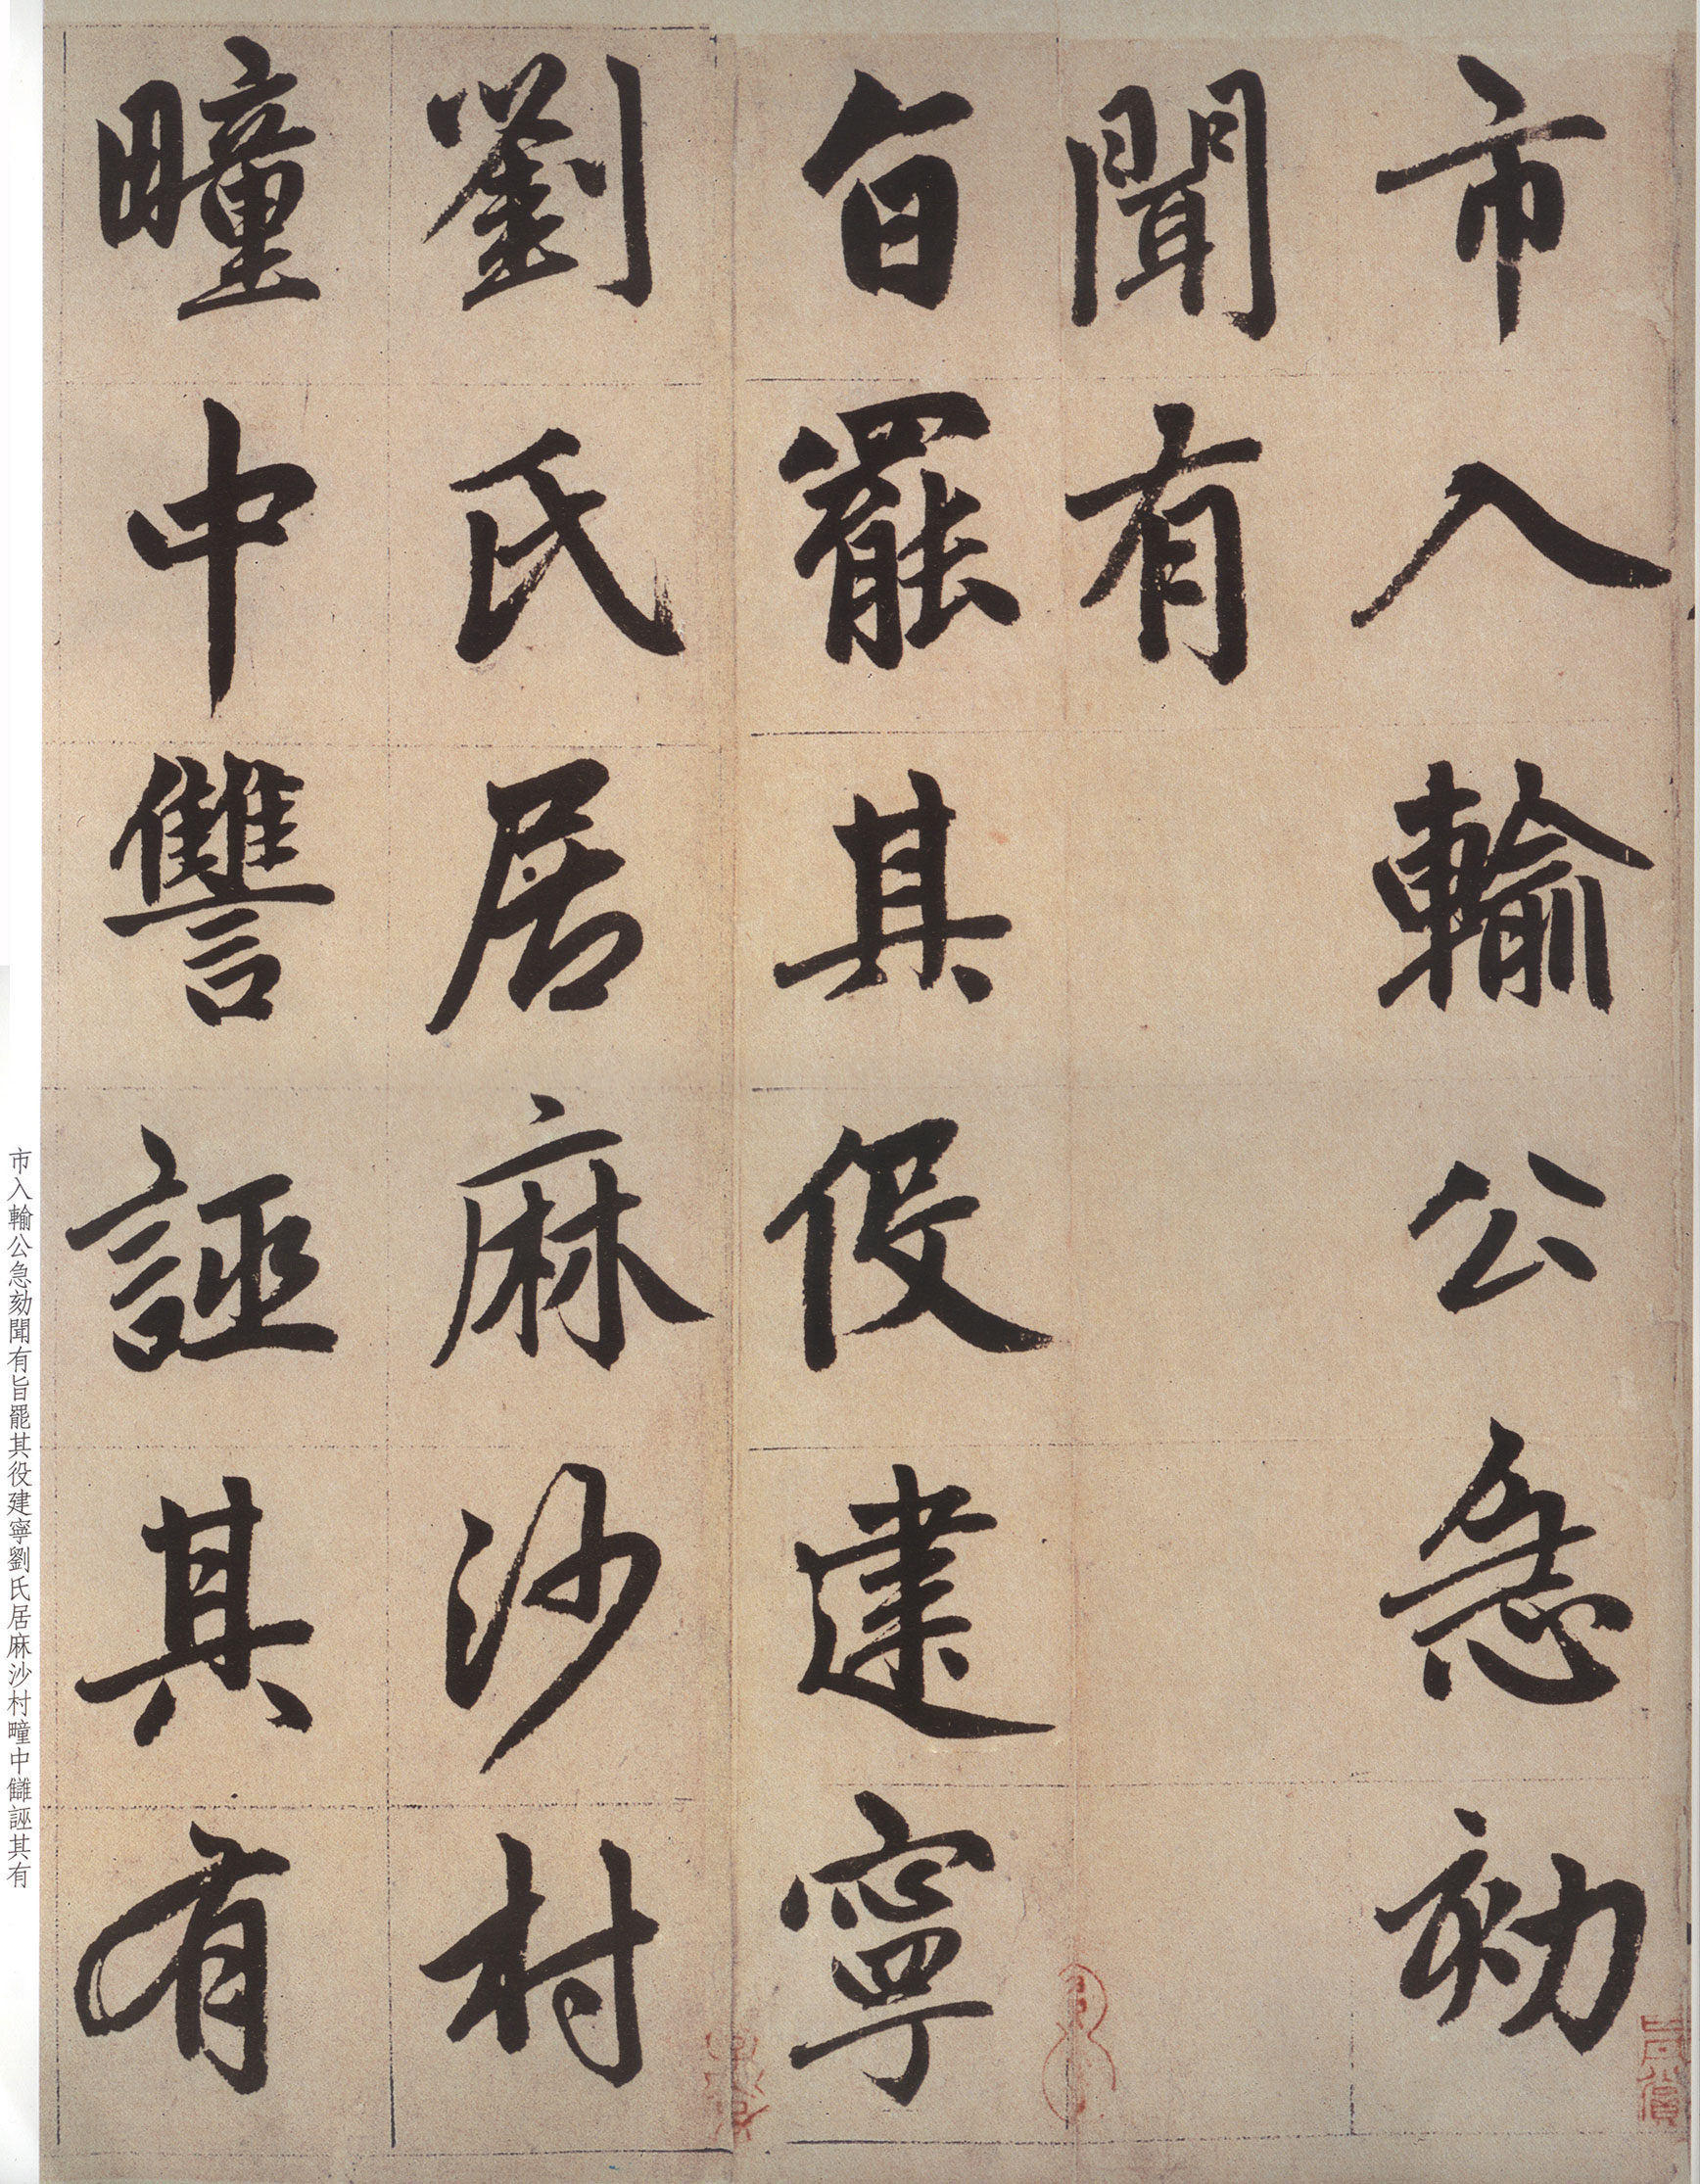 市入輸公急劾
聞有
旨罷其役建寧
劉氏居麻沙村
疃中讐誣其有
市入輸公急劾聞有旨罷其役建寧劉氏居麻沙村疃中讎誣其有